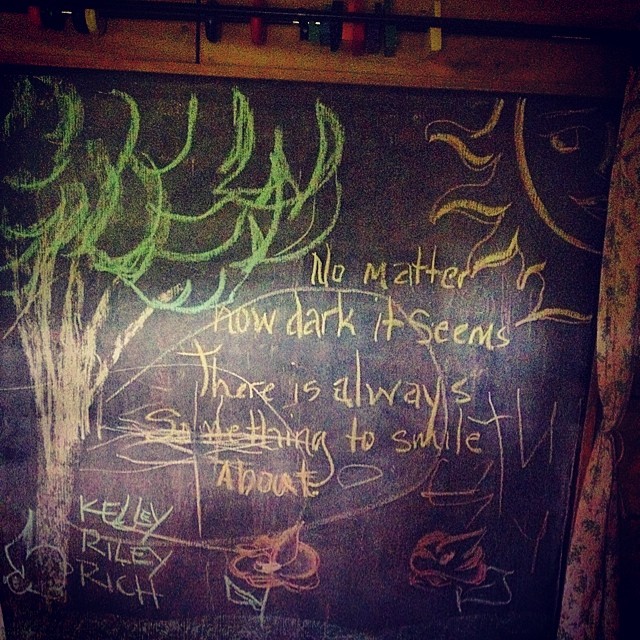 No matter
how dark it seems
There is always
Something to smile
About
KELLEY
RILEY
RICH